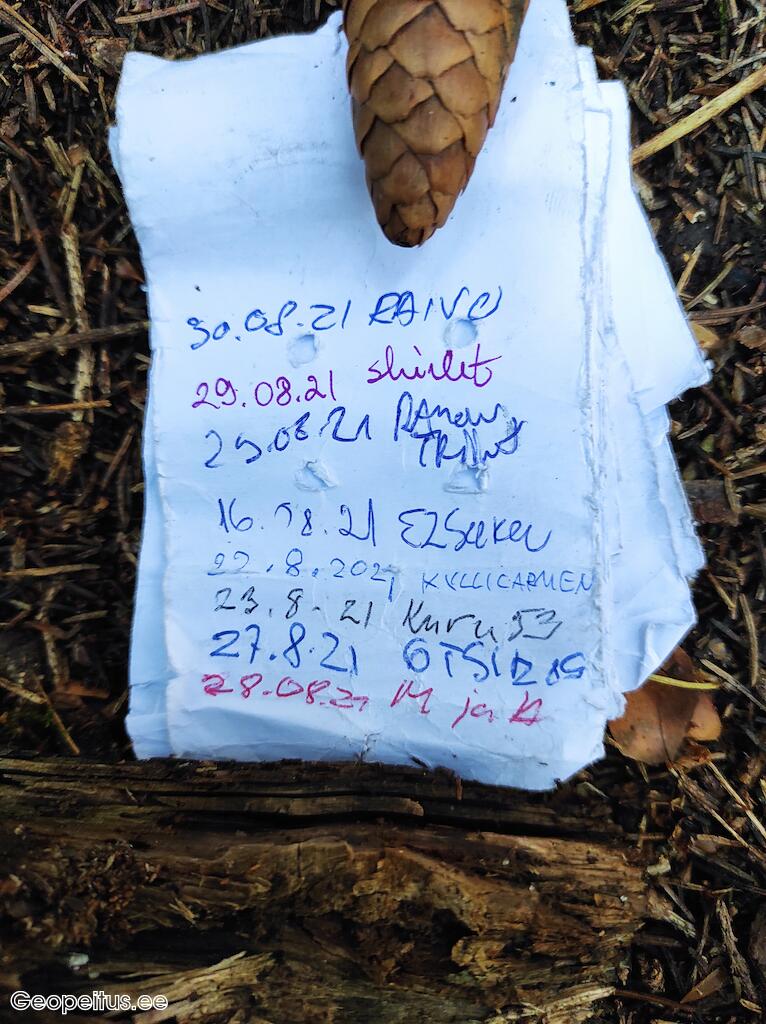 30.08.21 RAIVO
29.08.21 shirlet
29.08.21
16.08.21
22.8.2021 KYLLICARMEN
23.8.21 Kuru53
27.8.21 OTSIZ
28.08.21 M ja K
Geopeitus.ee